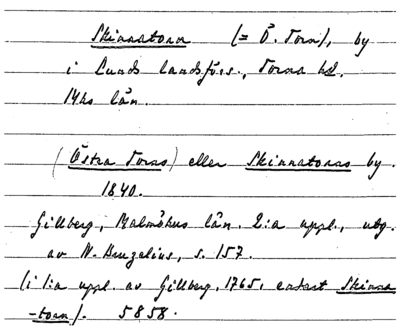 Skinnatorn (= Ö. Torn), by
i Lunds landsförs., Torna hd.
Mhs län.
(Östra Torns) eller Skinnatorns by.
1840.
Gillberg, Malmöhus län. 2:a uppl., utg.
av N. Bruzelius, s. 157.
(i 1:a uppl. av Gillberg, 1765, endast Skinna
-torn). 5858.